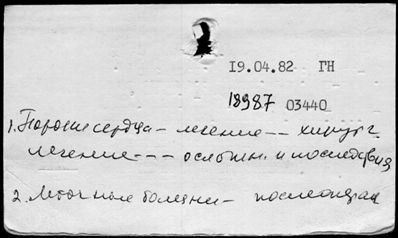 19.04.82 ГН
18987 03440
1. Пороки сердца - лечение -- хирург.
лечение --- осложн. и последствия
2. Легочные болезни -